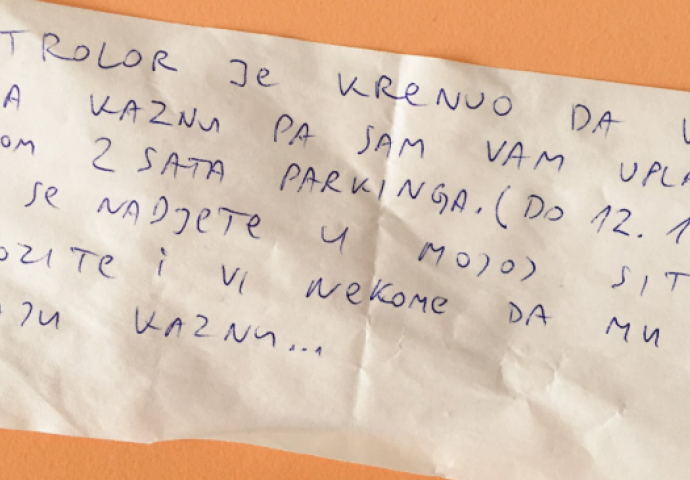 TROLOR JE KRENUO DA
A KAZNU PA SAM VAM UPLA
OM 2 SATA PARKINGA. (DO 12. 1
SE NADJETE U MOJOJ SIT
OZITE i VI NEKOME DA MU
AJU KAZNU...